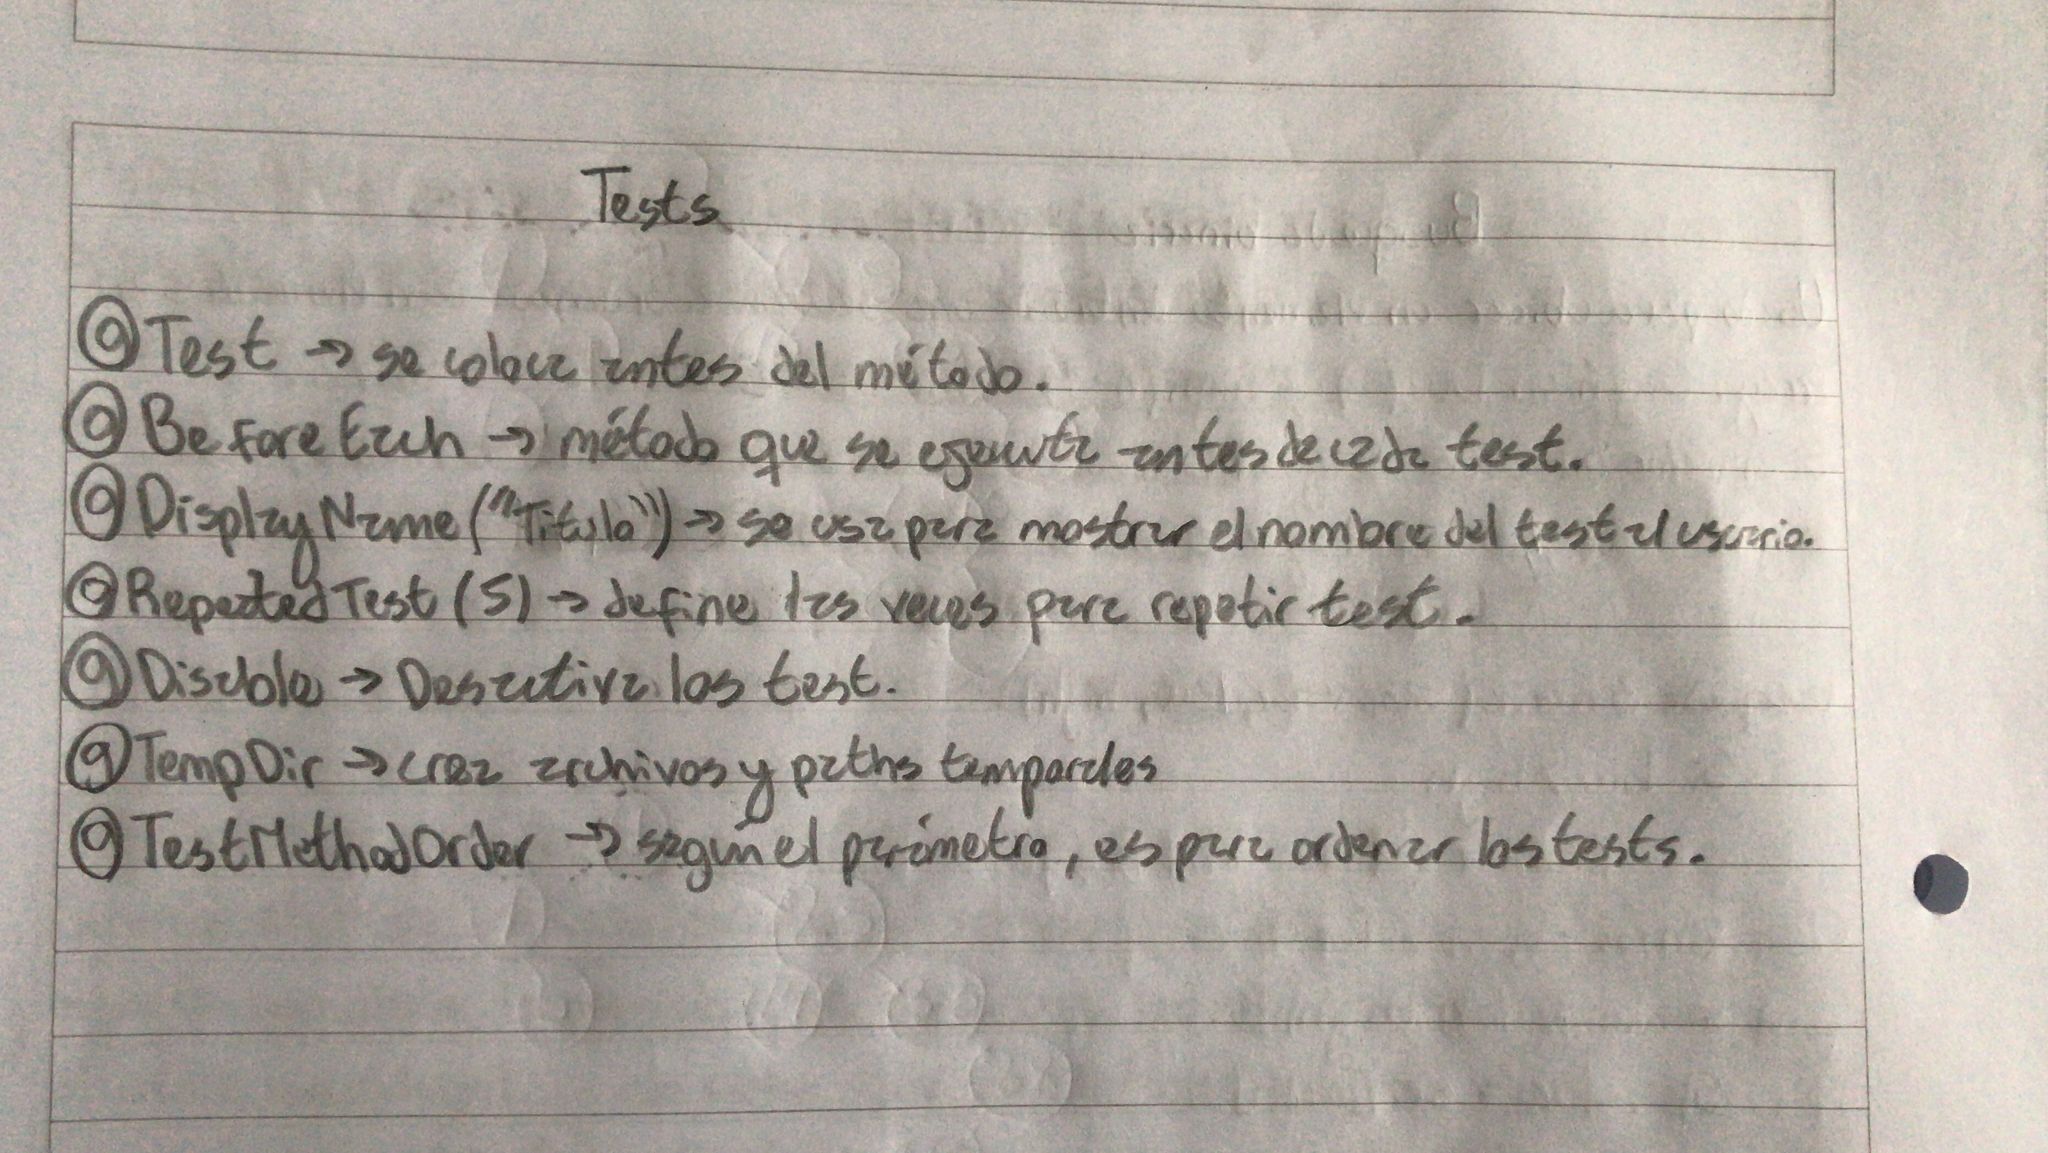 Tests
@Test → se coloca antes del método.
@BeforeEach → método que se ejecuta antes de cada test.
@DisplayName("Titulo") → se usa para mostrar el nombre del test al usuario.
@RepeatedTest(5) → define las veces para repetir test.
@Disable → Desactiva los test.
@TempDir → crea archivos y paths temporales
@TestMethodOrder → según el parámetro, es para ordenar los tests.